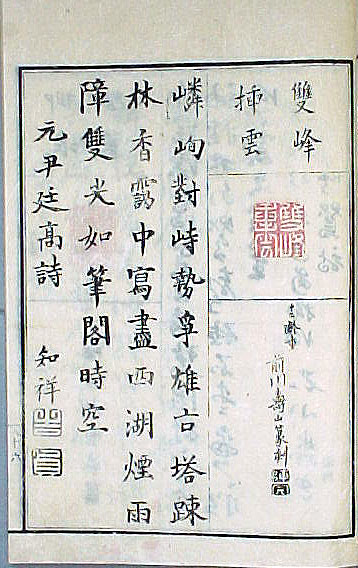 雙峰
插雲
前川壽山篆刻
嶙峋對峙勢爭雄古塔疎
林杳靄中寫盡西湖煙雨
障雙尖如筆閣時空
元尹廷高詩
知祥
十六